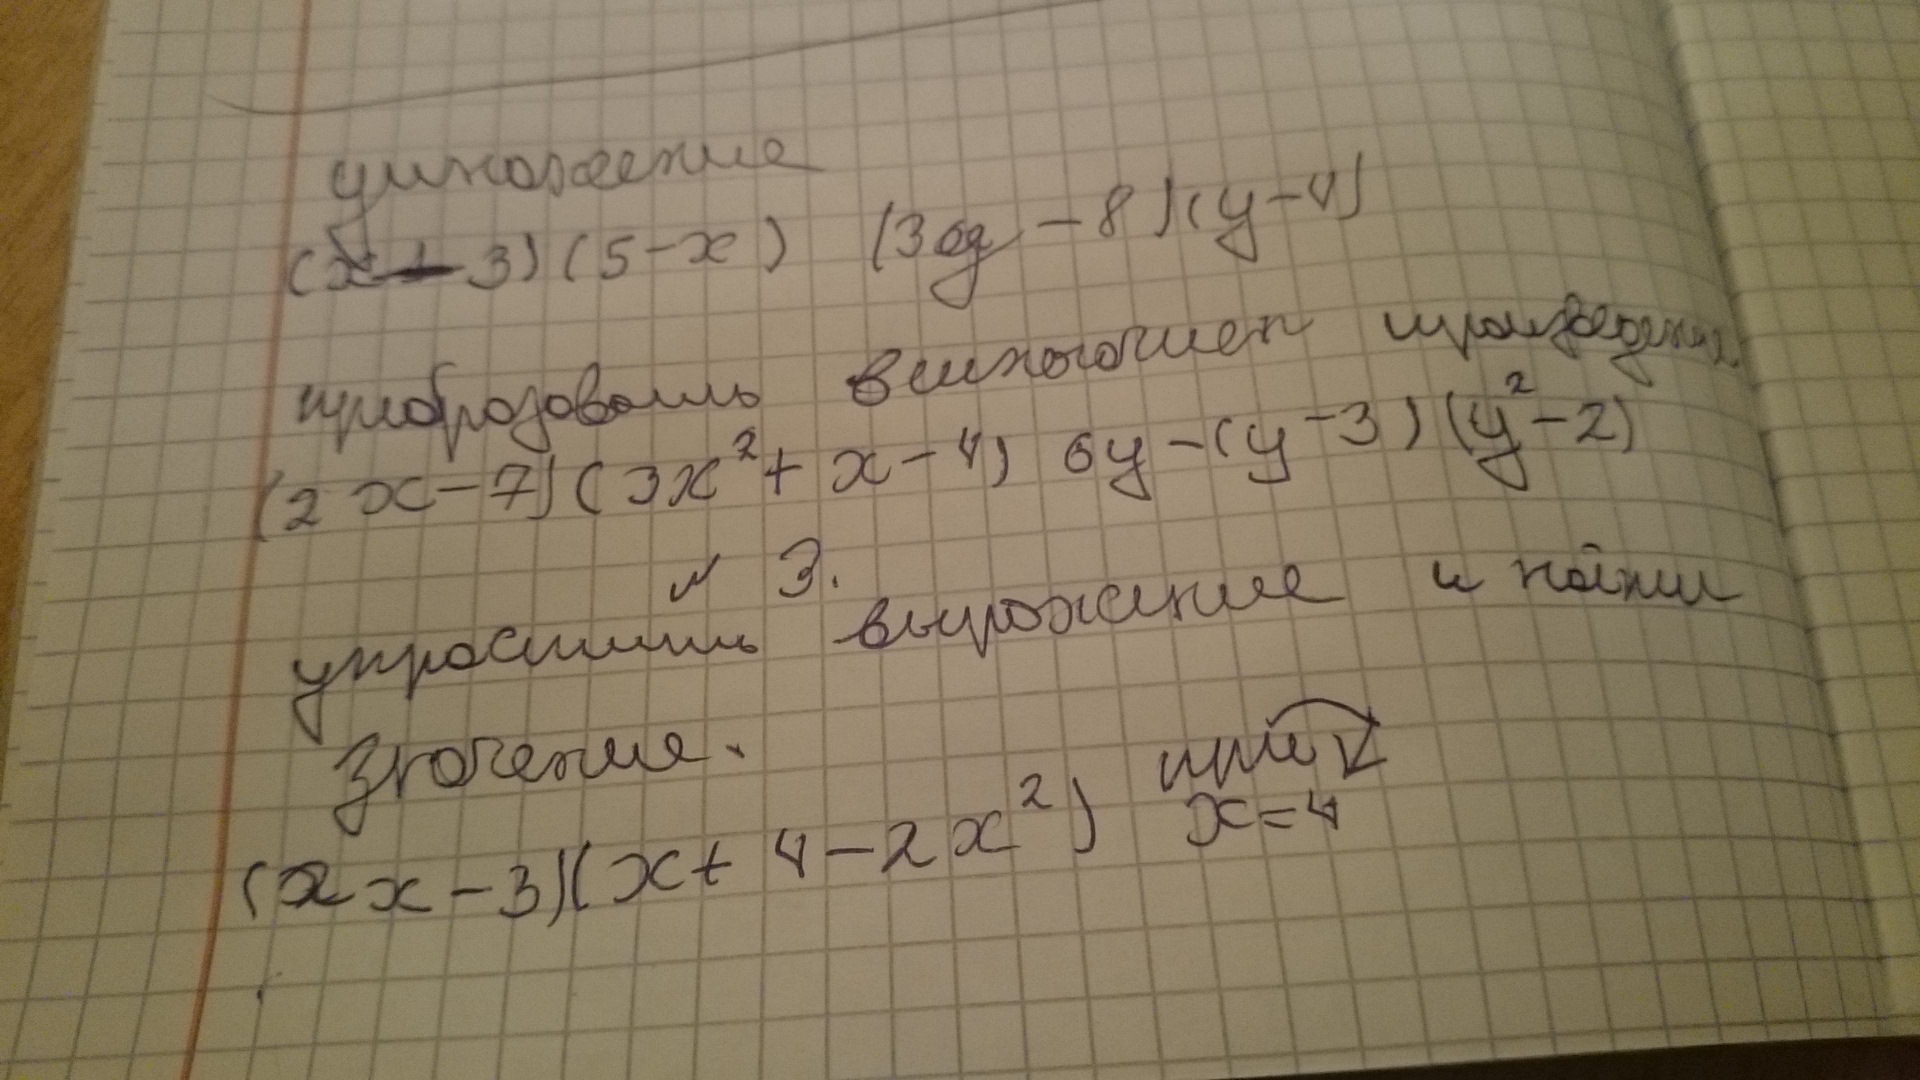 умножение
(x - 3) (5 - x) (3y - 8) (y - 4)
приобразовать в многочлен произведения
(2x - 7) (3x² + x - 4) 6y - (y - 3) (y² - 2)
N 3.
упростить выражение и найти
значение.
при
(2x - 3) (x + 4 - 2x²) x = 4